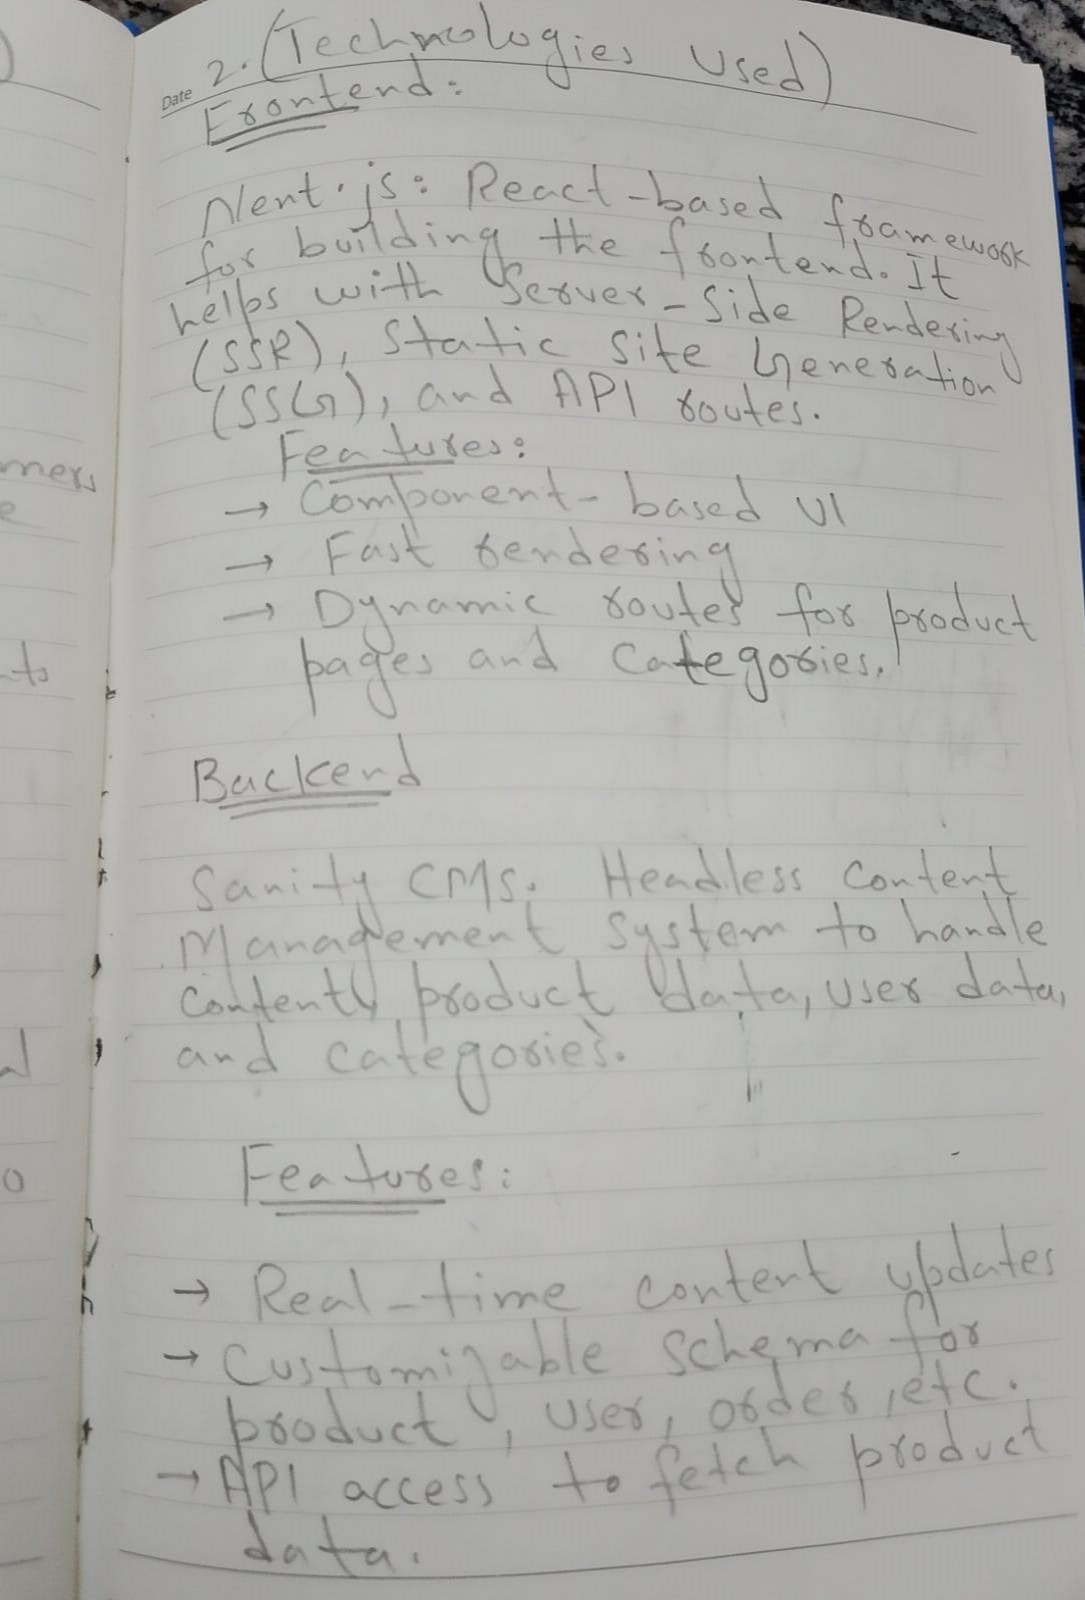 2. (Technologies Used)
Date
Frontend:
Next.js: React-based framework
for building the frontend. It
helps with Server-Side Rendering
(SSR), Static Site Generation
(SSG), and API routes.
Features:
→ Component-based UI
→ Fast rendering
→ Dynamic routes for product
pages and Categories.
Backend
Sanity CMS: Headless Content
Management System to handle
content, product data, user data,
and categories.
Features:
→ Real-time content updates
→ Customizable Schema for
product, user, order, etc.
→ API access to fetch product
data.